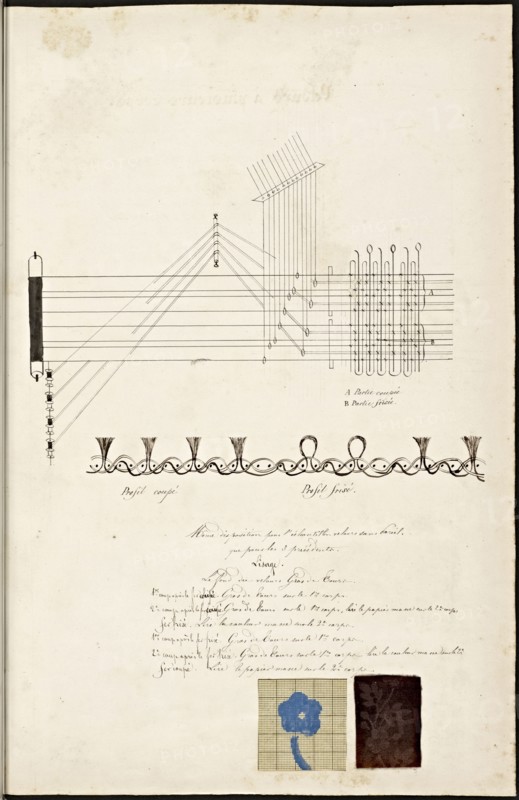 A
B
A Partie coupée
B Partie frisée.
Profil coupé
Profil frisé.
Même disposition pour l'échantillon velours sans
que pour les 2 précédents.
Lisage.
Le fond du velours Gros de Tours
1er coup après fer Gros de Tours sur le 1er corps.
2e coup après fer Gros de Tours sur le 1er corps, lire le papier
fer frisé. Lire la couleur sur le 2e corps.
1er coup après fer frisé. Gros de Tours sur le 1er corps.
2e coup après fer frisé Gros de Tours sur le 1er corps, lire la couleur
fer coupé. Lire le papier sur le 2e corps.